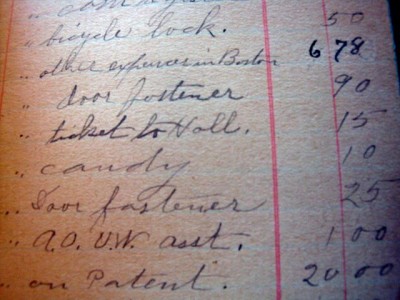 " bicycle lock. 50
" other expenses in Boston 6 78
" Door fastener 90
" ticket to Hall. 15
" candy 10
" Door fastener 25
" A.O.U.W. asst. 1 00
" on Patent. 20 00